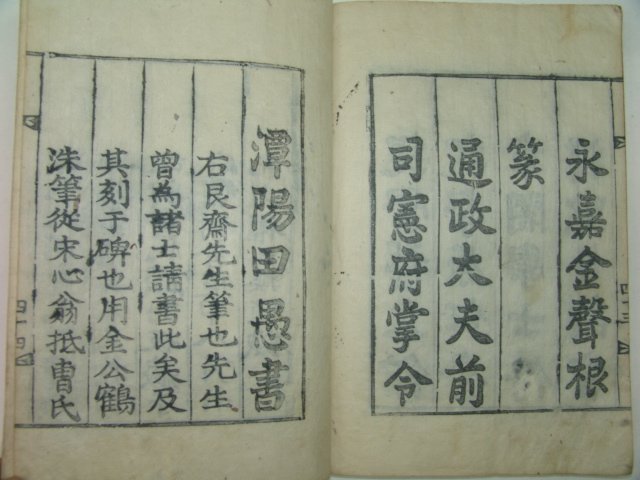 永嘉金聲根
篆
通政大夫前
司憲府掌令
潭陽田愚書
右艮齋先生筆也先生
曾為諸士請書此矣及
其刻于碑也用金公鶴
洙筆從宋心翁抵曺氏
四十三
四十四